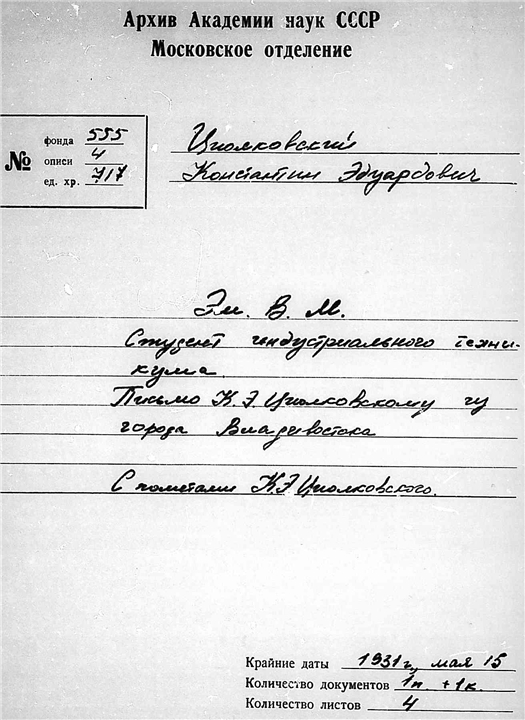 Архив Академии наук СССР
Московское отделение
№
фонда 555
описи 4
ед. хр. 717
Циолковский
Константин Эдуардович
Эм. В. М.
Студент индустриального техни-
кума
Письмо К.Э. Циолковскому из
города Владивостока
С пометами К.Э Циолковского.
Крайние даты 1931 г, мая 15
Количество документов 1п. +1к.
Количество листов 4